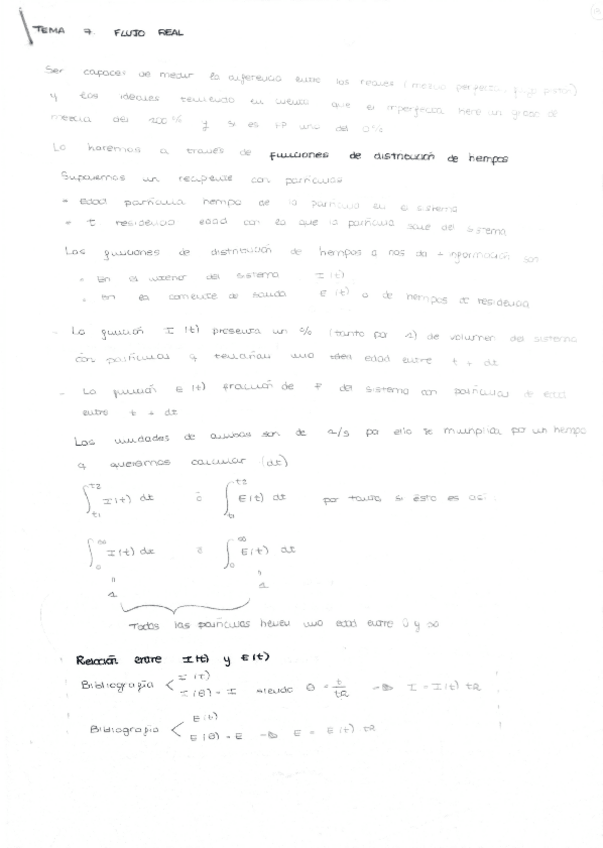 TEMA 7. FLUJO REAL
Ser capaces de medir la diferencia entre los reales (mezcla perfecta, flujo pistón)
y los ideales teniendo en cuenta que el imperfecto tiene un grado de
mezcla del 100% y si es FP uno del 0%
Lo haremos a través de funciones de distribución de tiempos
Suponemos un recipiente con partículas
• edad partícula tiempo de la partícula en el sistema
• t residencia edad con la que la partícula sale del sistema
Las funciones de distribución de tiempos q nos da + información son
• En el interior del sistema I(t)
• en la corriente de salida E(t) o de tiempos de residencia
- La función I(t) presenta un % (tanto por 1) de volumen del sistema
con partículas q tendrían una edad entre t + dt
- La función E(t) fracción de F del sistema con partículas de edad
entre t + dt
Las unidades de ambas son de 1/s por ello se multiplica por un tiempo
q queramos calcular (dt)
∫t1 t2 I(t) dt ó ∫t1 t2 E(t) dt por tanto si ésto es así:
∫0 ∞ I(t) dt ó ∫0 ∞ E(t) dt
" "
1 1
Todas las partículas tienen una edad entre 0 y ∞
Relación entre I(t) y E(t)
Bibliografía < I(t)
I(θ) = I siendo θ = t/tR → I = I(t) tR
Bibliografía < E(t)
E(θ) = E → E = E(t) tR